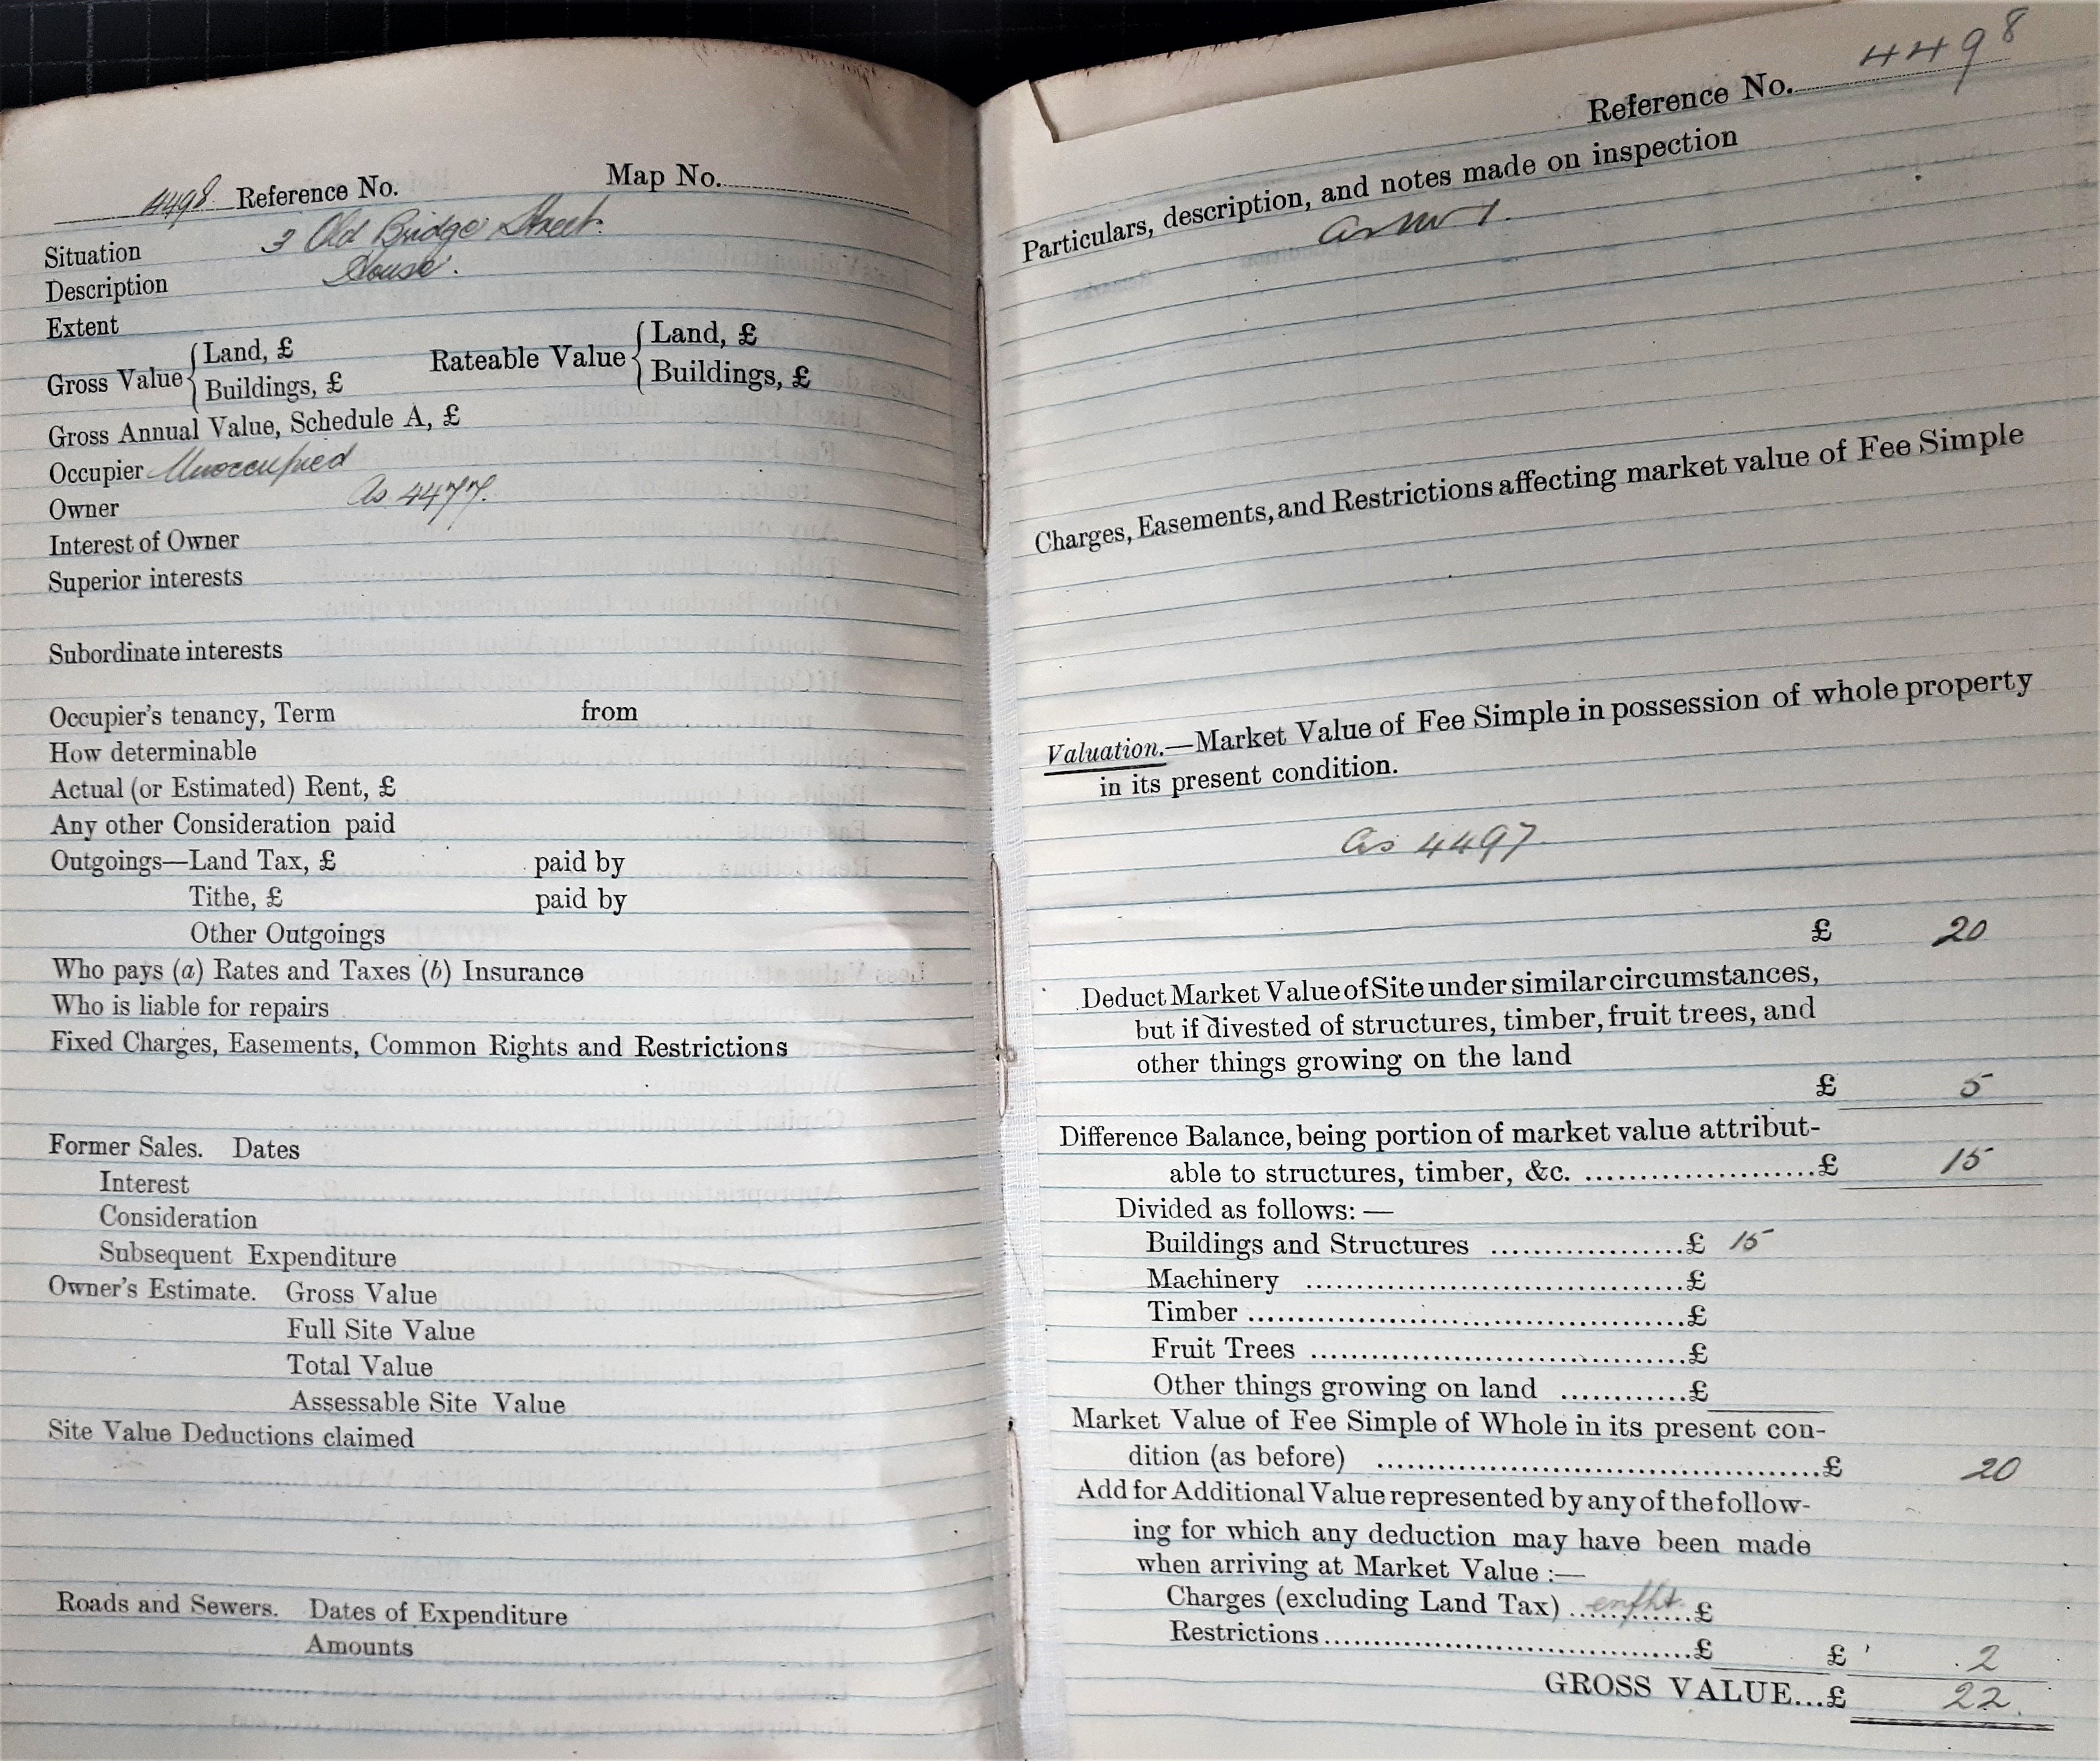 4498 Reference No. Map No.
Situation 3 Old Bridge Street.
Description House.
Extent
Gross Value { Land, £ Rateable Value { Land, £
Buildings, £ Buildings, £
Gross Annual Value, Schedule A, £
Occupier Unoccupied
Owner As 4477.
Interest of Owner
Superior interests
Subordinate interests
Occupier's tenancy, Term from
How determinable
Actual (or Estimated) Rent, £
Any other Consideration paid
Outgoings—Land Tax, £ paid by
Tithe, £ paid by
Other Outgoings
Who pays (a) Rates and Taxes (b) Insurance
Who is liable for repairs
Fixed Charges, Easements, Common Rights and Restrictions
Former Sales. Dates
Interest
Consideration
Subsequent Expenditure
Owner's Estimate. Gross Value
Full Site Value
Total Value
Assessable Site Value
Site Value Deductions claimed
Roads and Sewers. Dates of Expenditure
Amounts
Reference No. 4498
Particulars, description, and notes made on inspection
as No 1.
Charges, Easements, and Restrictions affecting market value of Fee Simple
Valuation.—Market Value of Fee Simple in possession of whole property
in its present condition.
As 4497
£ 20
Deduct Market Value of Site under similar circumstances,
but if divested of structures, timber, fruit trees, and
other things growing on the land
£ 5
Difference Balance, being portion of market value attribut-
able to structures, timber, &c. £ 15
Divided as follows: —
Buildings and Structures £ 15
Machinery £
Timber £
Fruit Trees £
Other things growing on land £
Market Value of Fee Simple of Whole in its present con-
dition (as before) £ 20
Add for Additional Value represented by any of the follow-
ing for which any deduction may have been made
when arriving at Market Value :—
Charges (excluding Land Tax) £
Restrictions £ £ 2
GROSS VALUE...£ 22.